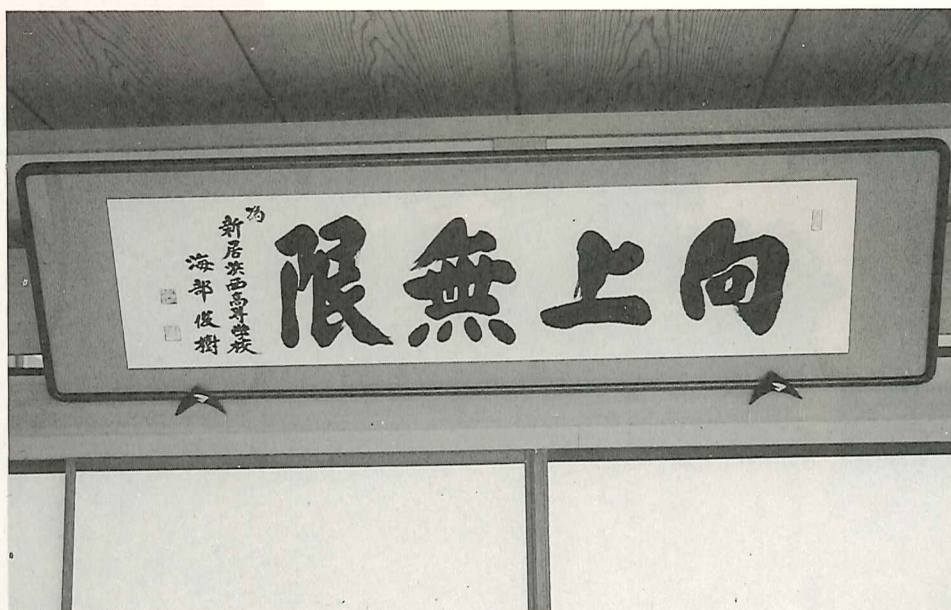 向上無限
為
新居浜西高等学校
海部俊樹